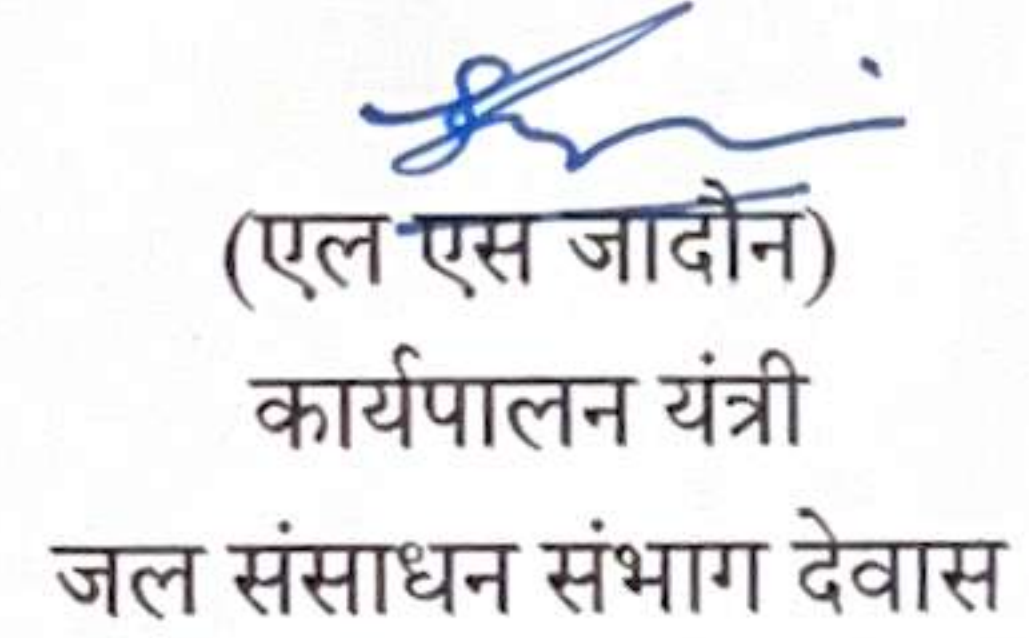 (एल एस जादौन)
कार्यपालन यंत्री
जल संसाधन संभाग देवास